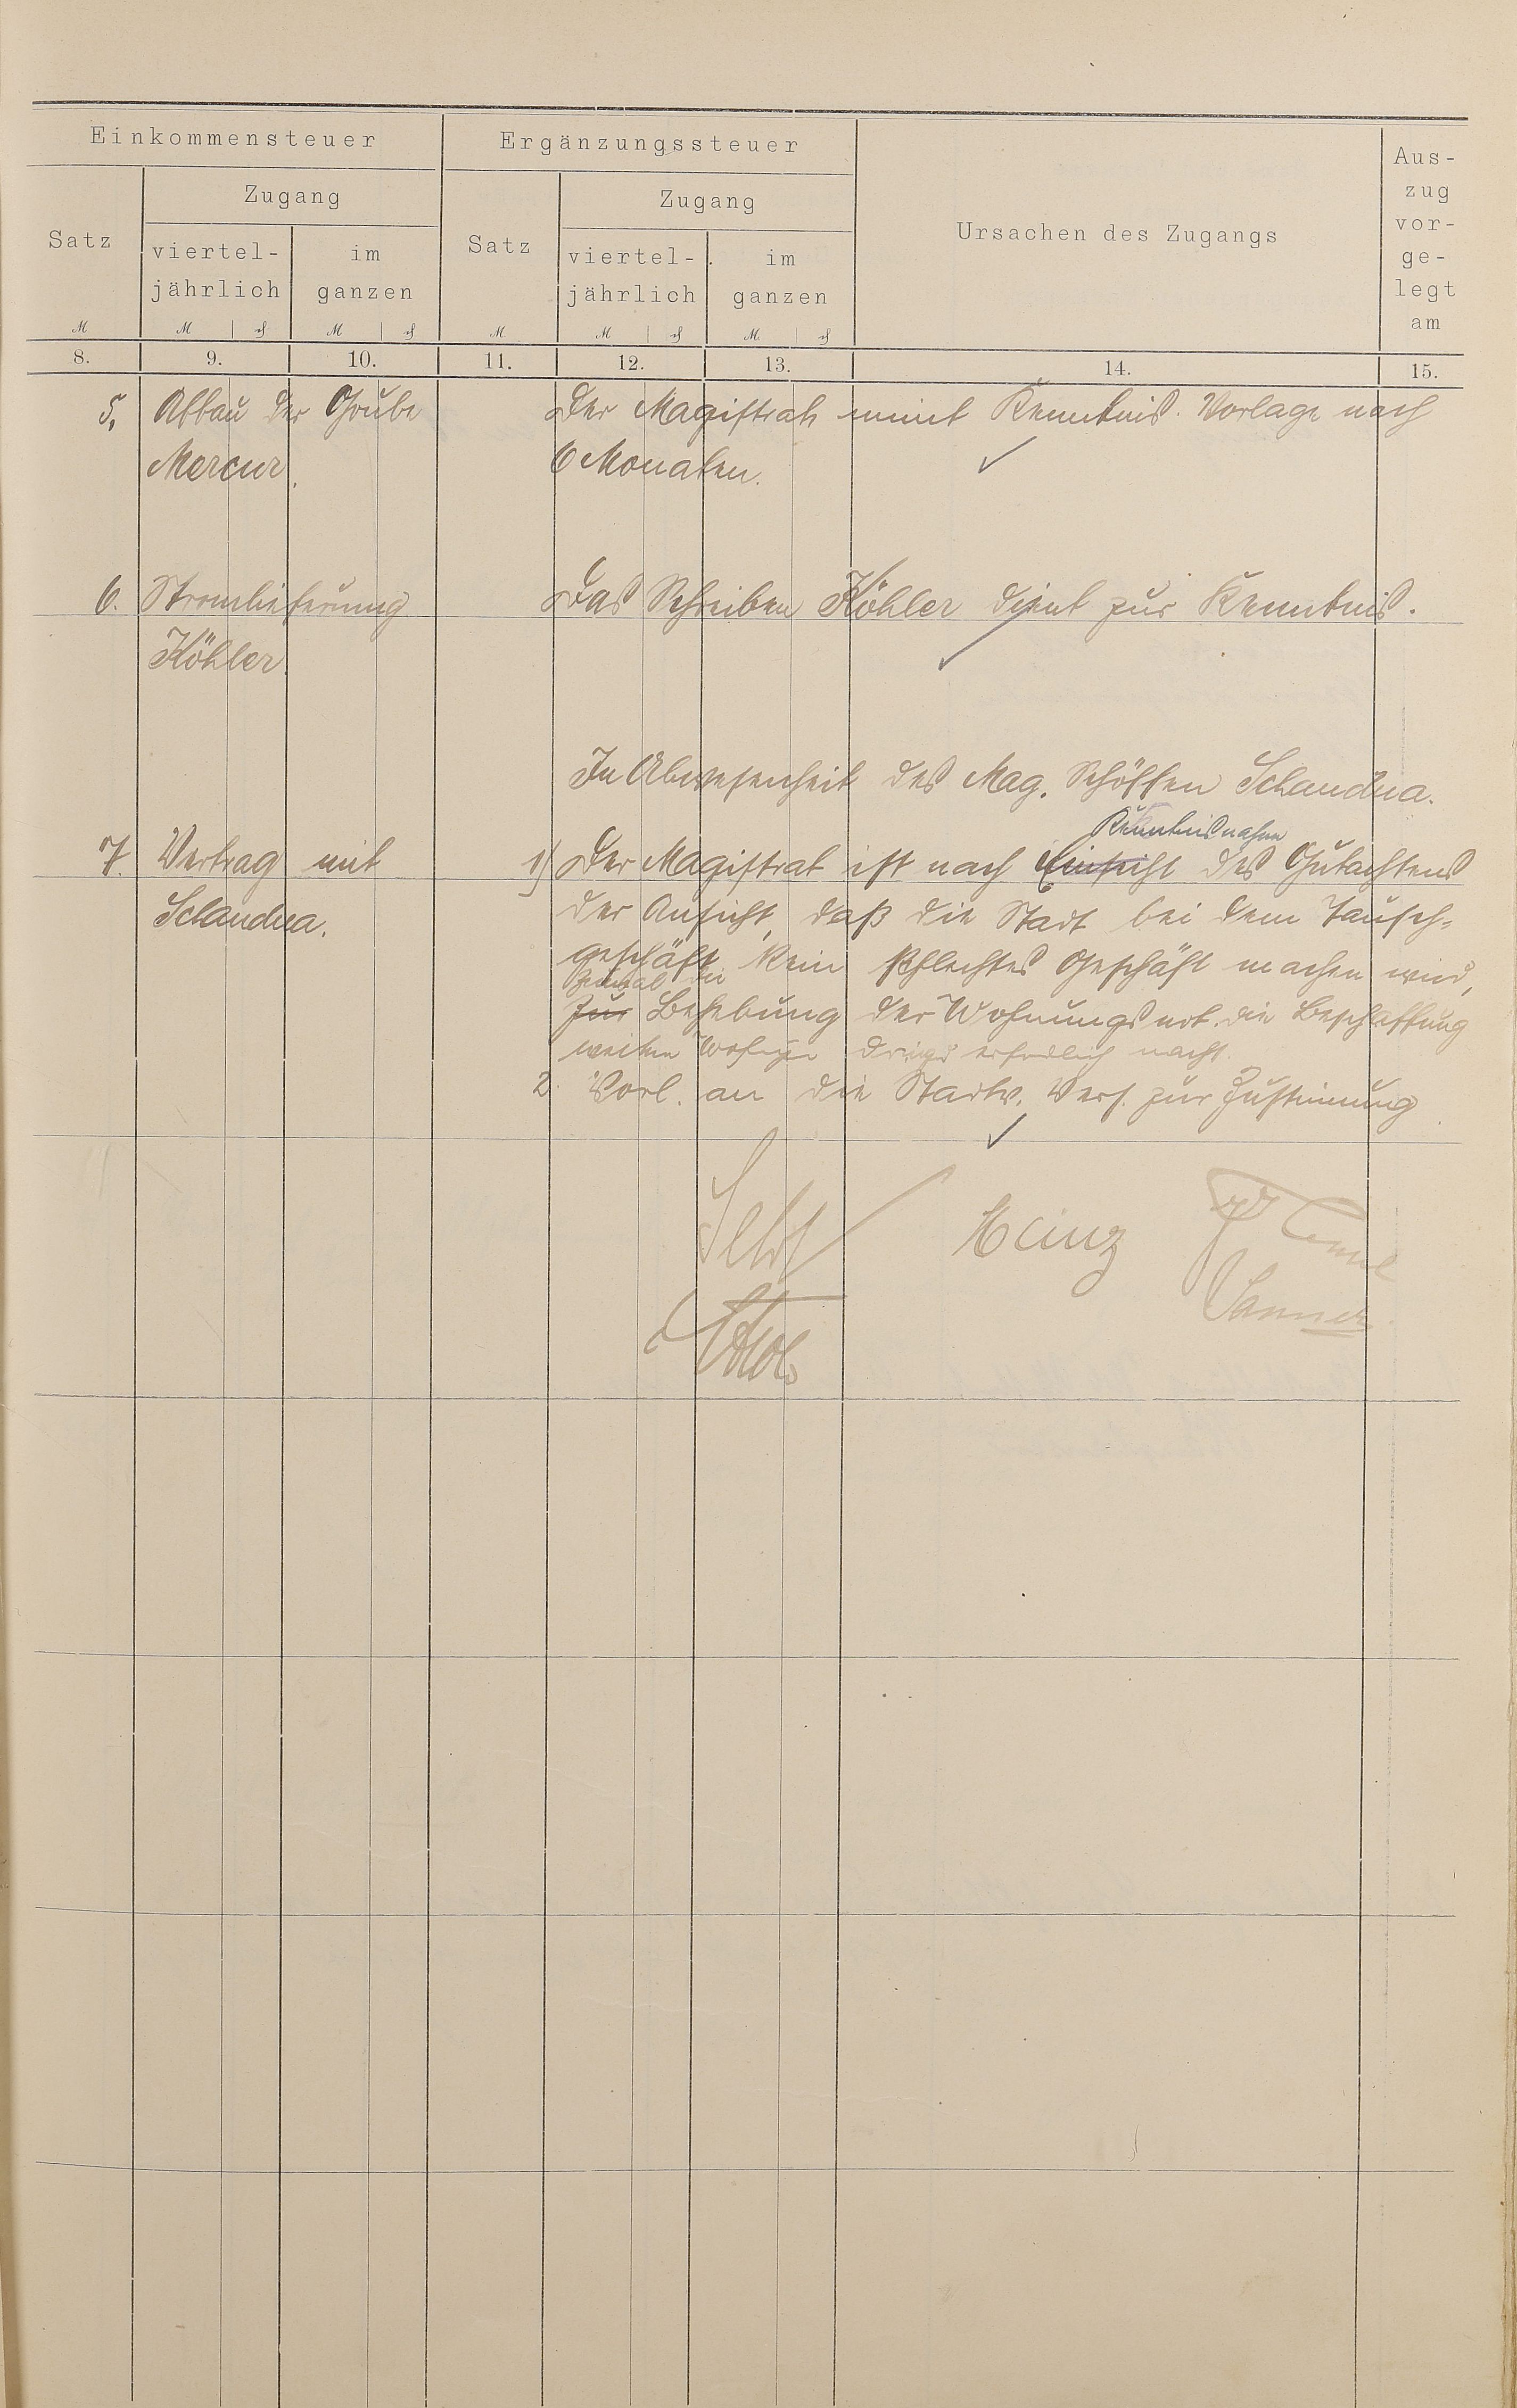 Einkommensteuer
Ergänzungssteuer
Ursachen des Zugangs
Aus-
zug
vor-
ge-
legt
am
Satz
Zugang
viertel-
jährlich
im
ganzen
Satz
Zugang
viertel-
jährlich
im
ganzen
M
M
M
M
M
M
8.
9.
10.
11.
12.
13.
14.
15.
5. Abbau der Grube
Mercur.
Der Magistrat nimt Kenntnis. Vorlage nach
6 Monaten.
6. Stromlieferung
Köhler.
Das Schreiben Köhler dient zur Kenntnis.
In Abwesenheit des Mag. Schöffen Schandua.
7. Vertrag mit
Schandua.
Kenntnisnahme
1) Der Magistrat ist nach Einsicht des Gutachtens
der Ansicht, daß die Stadt bei dem Tausch-
geschäft kein schlechtes Geschäft machen wird,
zumal die
zur Behebung der Wohnungsnot die Beschaffung
weiterer erforderlich macht.
2. Vorl. an die Stadtv. Vers. zur Zustimmung
Heinz
Sanner